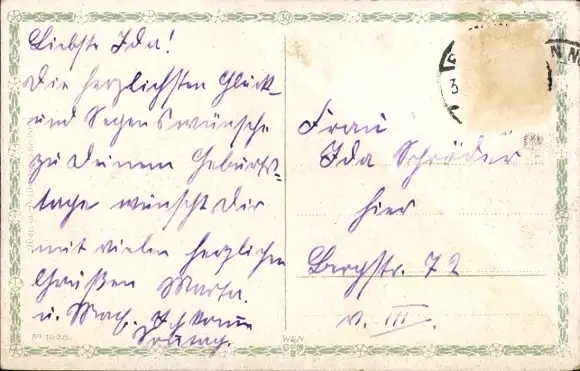 Liebste Ida!
Die herzlichsten Glück-
und Segenswünsche
zu Deinem Geburts-
tage wünscht Dir
mit vielen herzlichen
Grüßen Marta.
u. Ich komme
Sonntag.
Frau
Ida Schröder
hier
Bergstr. 72
v. III.
30
No 1628.
W&N